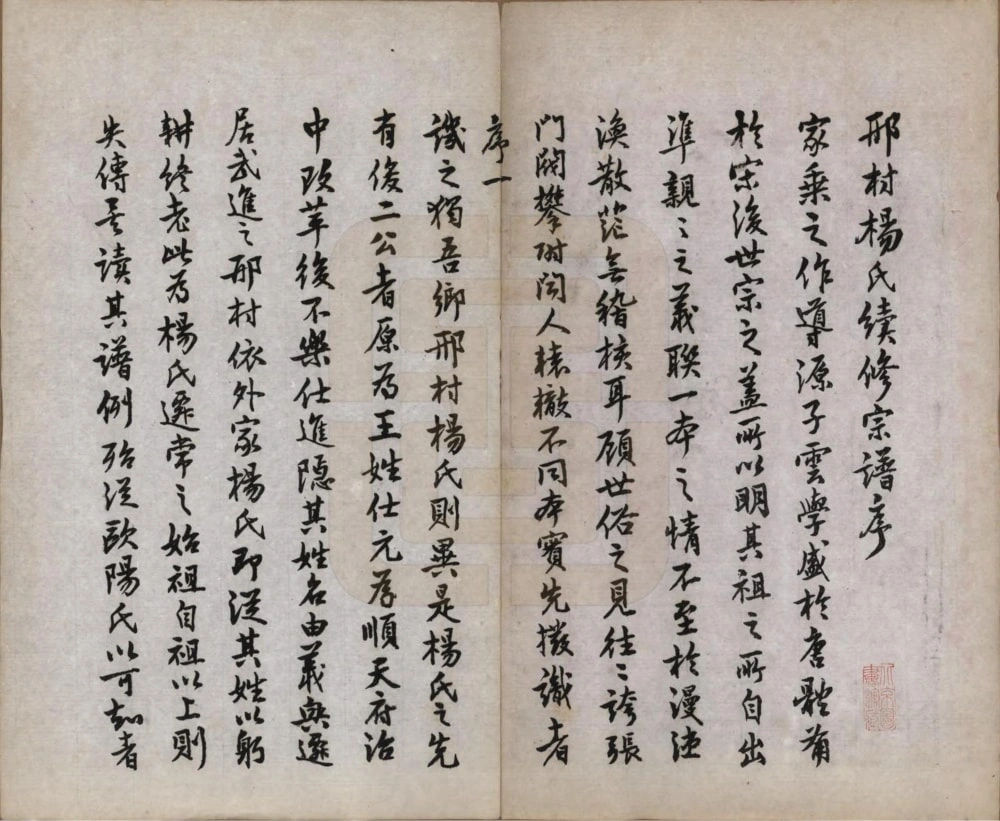 邢村楊氏續修宗譜序
家乘之作導源子雲學盛於唐體菊
於宋後世宗之蓋所以明其祖之所自出
準親之之義聯一本之情不至於漫漶
渙散茫無稽核耳顧世俗之見往往誇張
門閥攀附聞人轅轍不同本實先撥識者
序一
譏之獨吾鄉邢村楊氏則異是楊氏之先
有俊二公者原為王姓仕元為順天府治
中改革後不樂仕進隱其姓名由義興遷
居武進之邢村依外家楊氏即從其姓以躬
耕終老此為楊氏遷常之始祖自祖以上則
失傳吾讀其譜例殆從歐陽氏以可知者